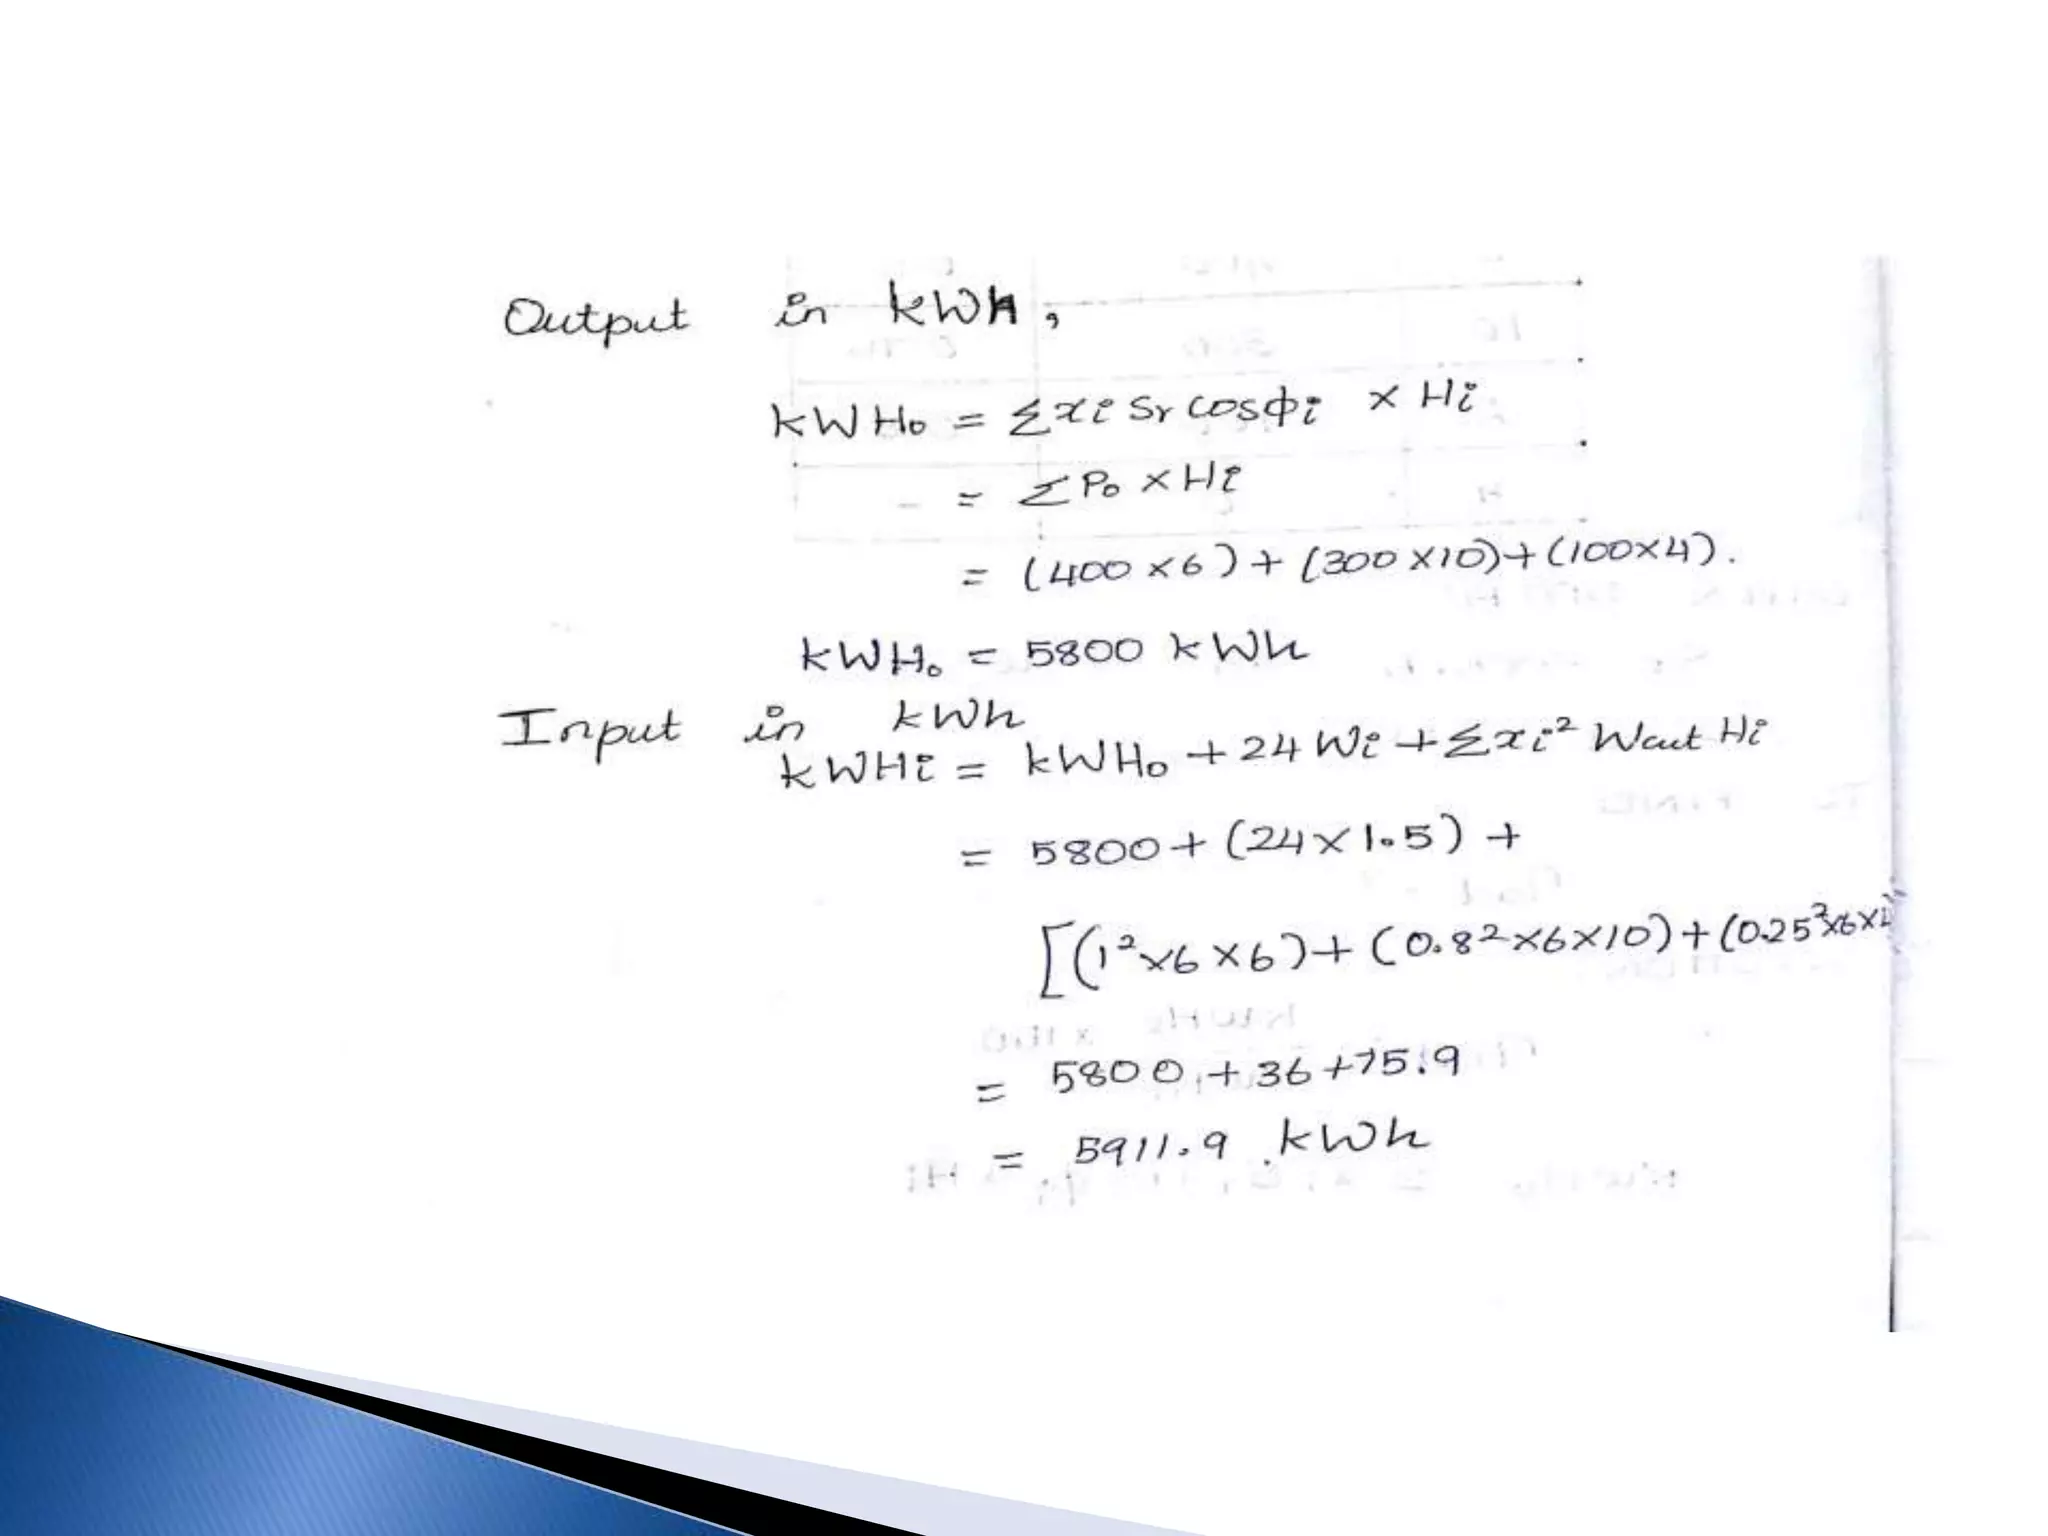 Output in kWh,
kWHo = Σxi Sr cosϕi × Hi
= ΣPo × Hi
= (400 × 6) + (300 × 10) + (100×4).
kWHo = 5800 kWh
Input in kWh
kWHi = kWHo + 24 Wi + Σxi² Wcut Hi
= 5800 + (24 × 1.5) +
[(1² × 6 × 6) + (0.8² × 6 × 10) + (0.25² × 6 ×
= 5800 + 36 + 75.9
= 5911.9 kWh